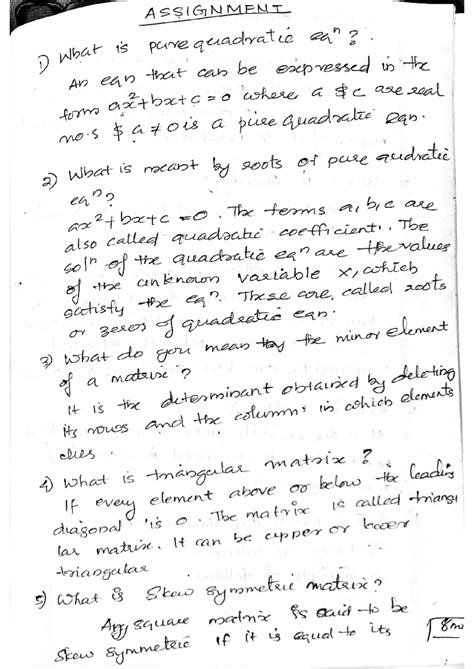 ASSIGNMENT
1) What is pure quadratic eqⁿ?.
An eqn that can be expressed in the
form ax²+bx+c=0 where a & c are real
no.s & a≠0 is a pure quadratic eqn.
2) What is meant by roots of pure qudratic
eqⁿ?
ax²+bx+c=0. The terms a, b, c are
also called quadratic coefficient. The
solⁿ of the quadratic eqⁿ are the values
of the unknown variable x, which
satisfy the eqⁿ. These are, called roots
or zeros of quadratic eqn.
3) What do you mean by the minor element
of a matrix?
It is the determinant obtained by deleting
its rows and the columns in which elements
4) What is triangular matrix?
If every element above or below the leading
diagonal is 0. The matrix is called triangu
lar matrix. It can be upper or lower
triangular
5) What is Skew Symmetric matrix?
Any square matrix is said to be
Skew symmetric if it is equal to its
8m